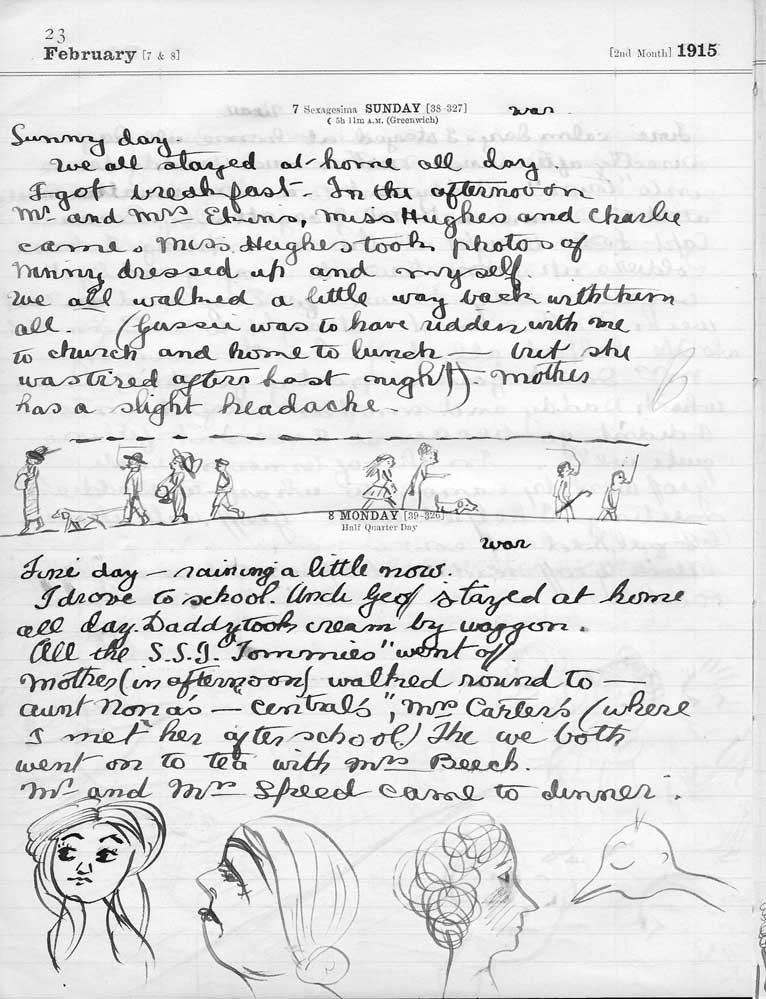 23
February [7 & 8] [2nd Month] 1915
7 Sexagesima SUNDAY [38-327] war
☾ 5h 11m A.M. (Greenwich)
Sunny day.
We all stayed at home all day.
I got breakfast. In the afternoon
Mr and Mrs Ekins, Miss Hughes and Charlie
came. Miss Hughes took photos of
Ninny dressed up and myself
We all walked a little way back with them
all. (Gussie was to have ridden with me
to church and home to lunch — but she
was tired after last night). Mother
has a slight headache.
8 MONDAY [39-326]
Half Quarter Day
war
Fine day — raining a little now.
I drove to school. Uncle Geof stayed at home
all day. Daddy took cream by waggon.
All the S.S.I. "Tommies" went off
Mother (in afternoon) walked round to —
aunt Nonas — "Central's", Mrs Carter's (where
I met her after school.) The we both
went on to tea with Mrs Beech.
Mr and Mrs Speed came to dinner.